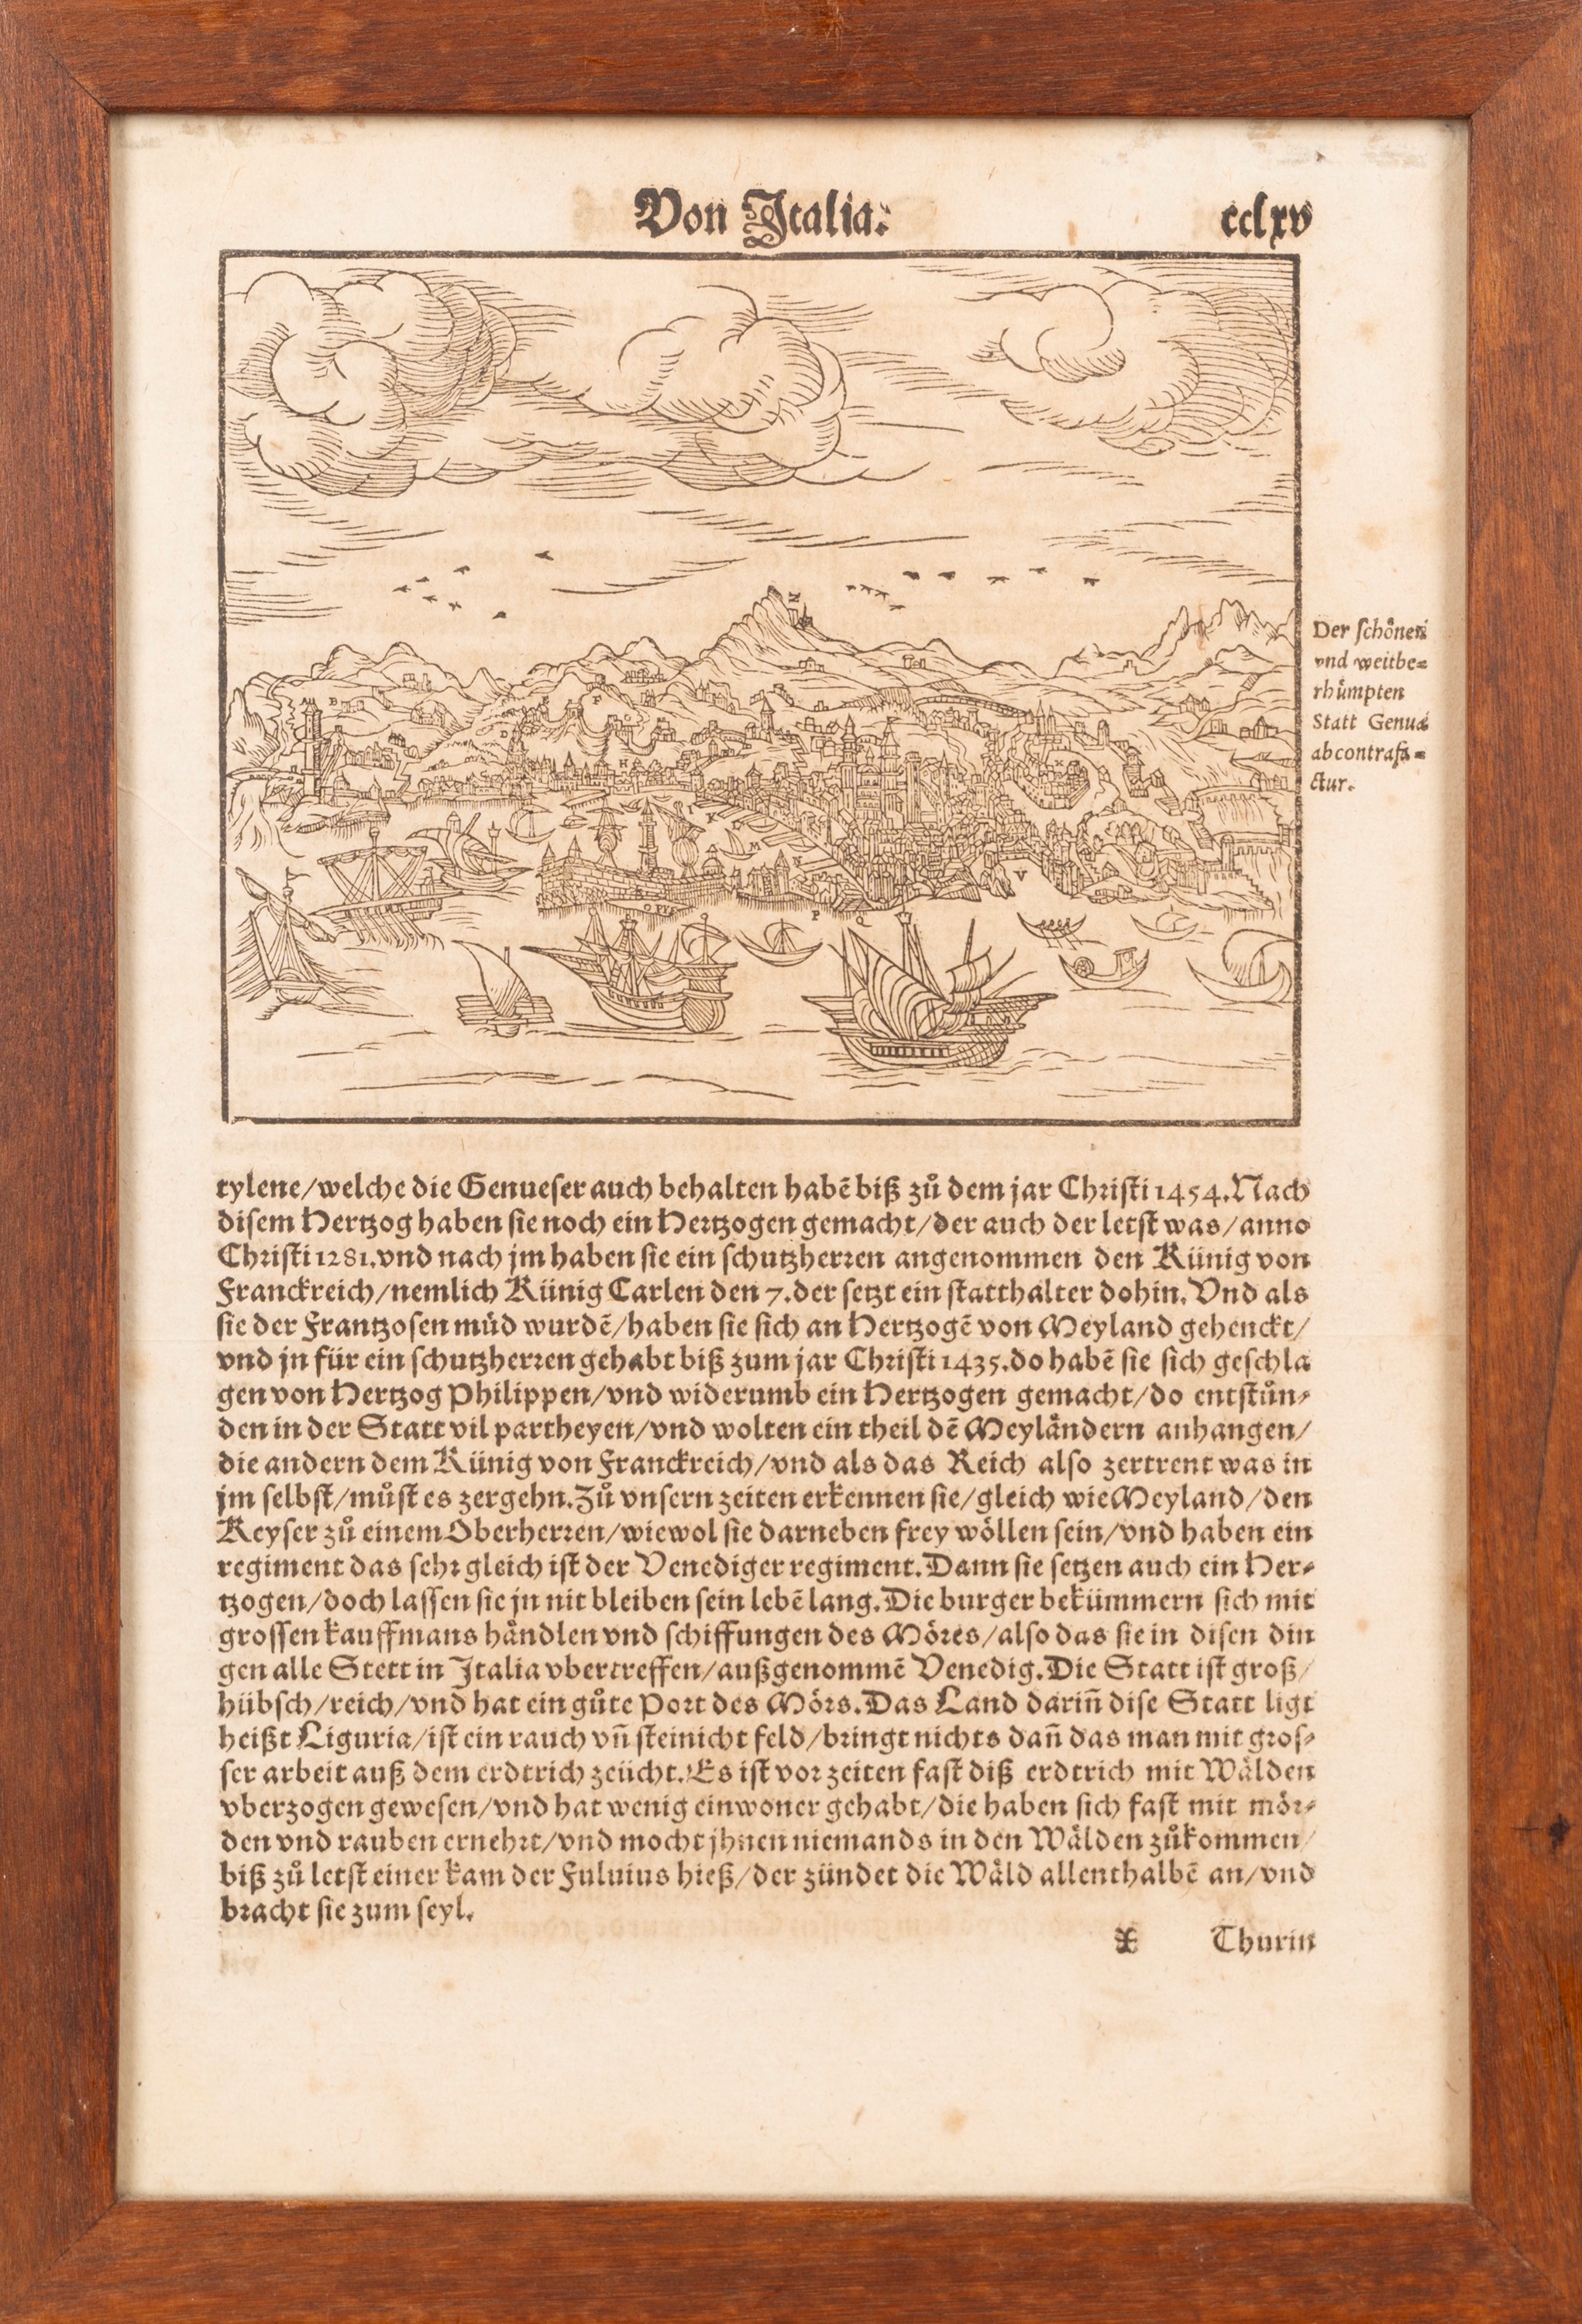 Von Italia.
cclxv
Der schönen
vnd weitbe=
rhůmpten
Statt Genua
abcontrafa=
ctur.
tylene/welche die Genueser auch behalten habē biß zů dem jar Christi 1454. Nach
disem Hertzog haben sie noch ein Hertzogen gemacht/der auch der letst was/anno
Christi 1281. vnd nach jm haben sie ein schutzherren angenommen den Künig von
Franckreich/nemlich Künig Carlen den 7. der setzt ein statthalter dohin. Vnd als
sie der Frantzosen müd wurdē/haben sie sich an Hertzogē von Meyland gehenckt/
vnd jn für ein schutzherren gehabt biß zum jar Christi 1435. do habē sie sich geschla
gen von Hertzog Philippen/vnd widerumb ein Hertzogen gemacht/do entstůn=
den in der Statt vil partheyen/vnd wolten ein theil dē Meyländern anhangen/
die andern dem Künig von Franckreich/vnd als das Reich also zertrent was in
jm selbst/můst es zergehn. Zů vnsern zeiten erkennen sie/gleich wie Meyland/den
Keyser zů einem Oberherren/wiewol sie darneben frey wöllen sein/vnd haben ein
regiment das sehr gleich ist der Venediger regiment. Dann sie setzen auch ein Her=
tzogen/doch lassen sie jn nit bleiben sein lebē lang. Die burger bekümmern sich mit
grossen kauffmans händlen vnd schiffungen des Möres/also das sie in disen din
gen alle Stett in Italia vbertreffen/außgenommē Venedig. Die Statt ist groß/
hübsch/reich/vnd hat ein gůte Port des Mörs. Das Land dariñ dise Statt ligt
heißt Liguria/ist ein rauch vñ steinicht feld/bringt nichts dañ das man mit gros=
ser arbeit auß dem erdtrich zeücht. Es ist vor zeiten fast diß erdtrich mit Wälden
vberzogen gewesen/vnd hat wenig einwoner gehabt/die haben sich fast mit mör=
den vnd rauben ernehrt/vnd mocht jhnen niemands in den Wälden zůkommen/
biß zů letst einer kam der Fuluius hieß/der zündet die Wäld allenthalbē an/vnd
bracht sie zum seyl.
Thurin